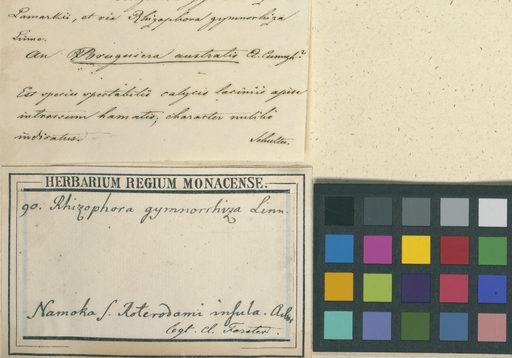 Lamarkii, et vix Rhizophora gymnorhiza
Linn.
An Bruguiera australis A. Cunngh.?
Est species spectabilis calycis laciniis apice
introrsum hamatis, character nullibi
indicatus.
Schultes.
HERBARIUM REGIUM MONACENSE.
90. Rhizophora gymnorrhiza Linn
Namoka s. Roterodami insula.
legt. cl. Forster.